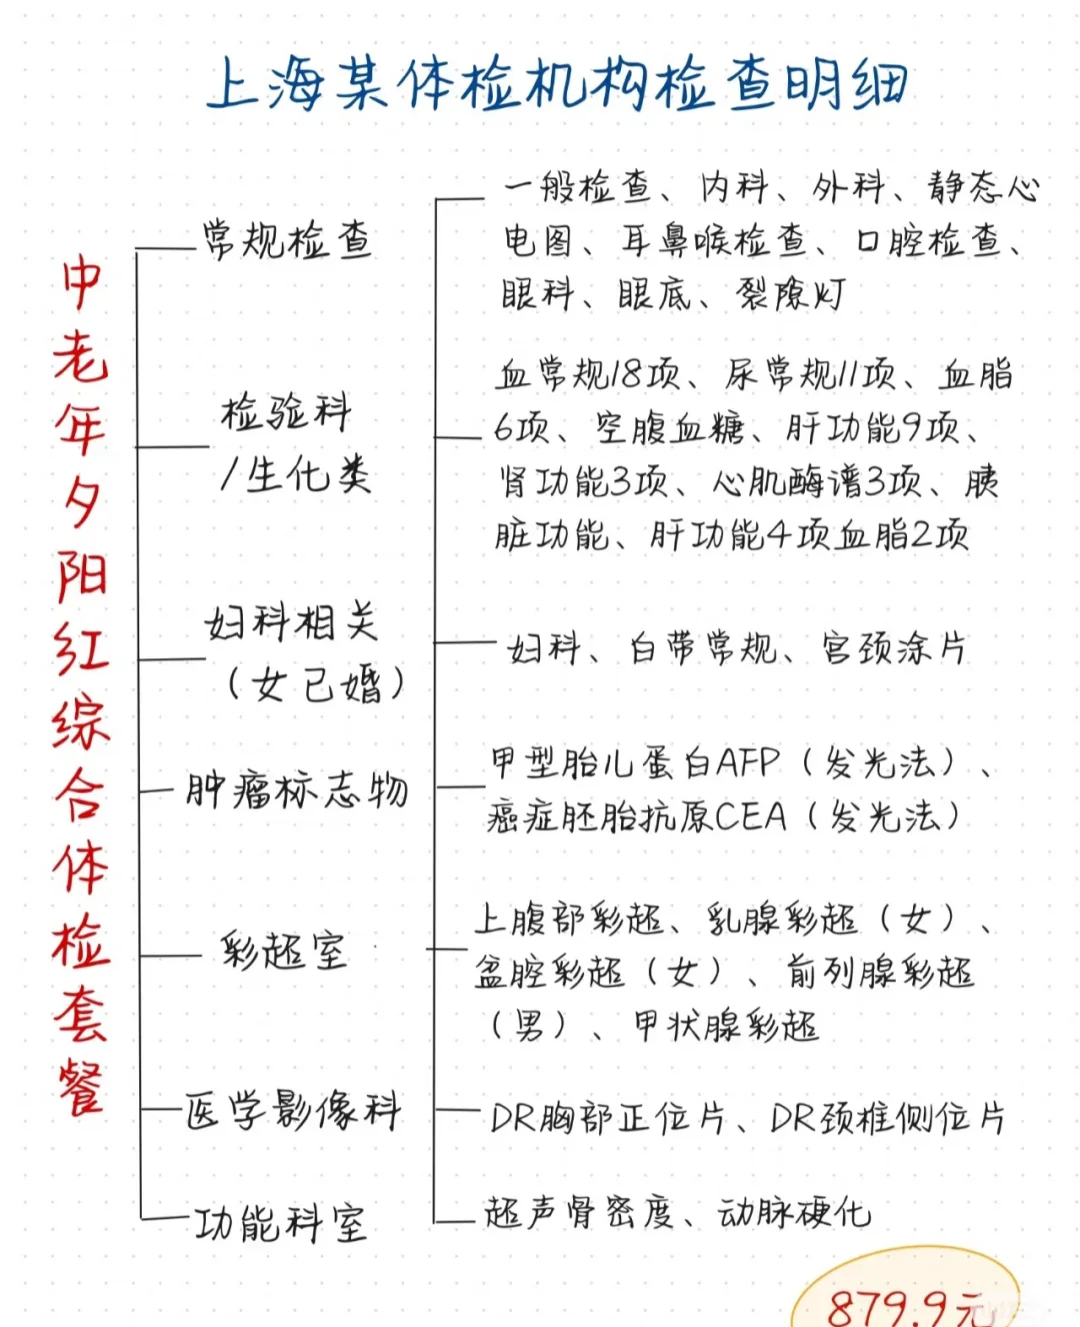 上海某体检机构检查明细
中老年夕阳红综合体检套餐
常规检查
一般检查、内科、外科、静态心
电图、耳鼻喉检查、口腔检查、
眼科、眼底、裂隙灯
检验科
/生化类
血常规18项、尿常规11项、血脂
6项、空腹血糖、肝功能9项、
肾功能3项、心肌酶谱3项、胰
脏功能、肝功能4项血脂2项
妇科相关
（女已婚）
妇科、白带常规、宫颈涂片
肿瘤标志物
甲型胎儿蛋白AFP（发光法）、
癌症胚胎抗原CEA（发光法）
彩超室
上腹部彩超、乳腺彩超（女）、
盆腔彩超（女）、前列腺彩超
（男）、甲状腺彩超
医学影像科
DR胸部正位片、DR颈椎侧位片
功能科室
超声骨密度、动脉硬化
879.9元